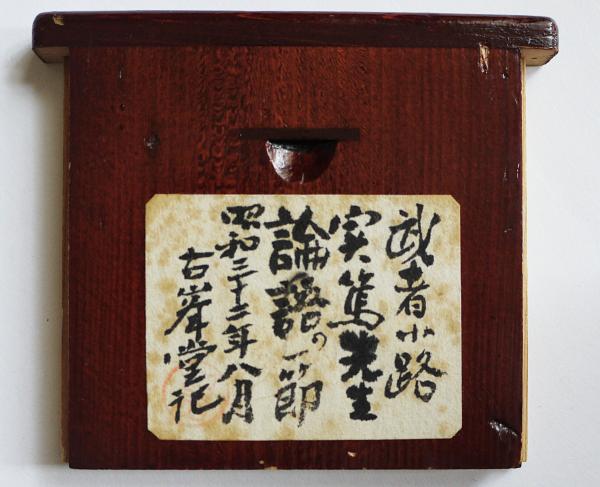 武者小路
実篤先生
論語の一節
昭和三十二年八月
古峯堂記